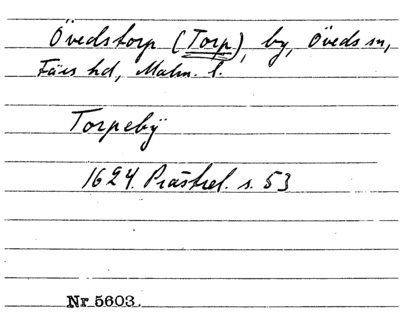 Övedstorp (Torp), by, Öveds sn,
Färs hd, Malm. l.
Torpebÿ
1624. Prästrel. s. 53
Nr 5603.